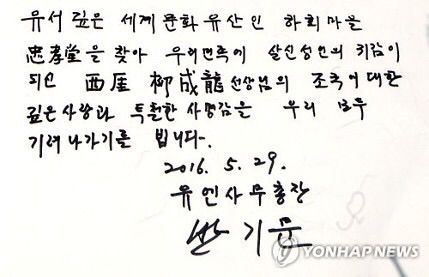 유서 깊은 세계 문화 유산인 하회마을
忠孝堂을 찾아 우리민족에 살신성인의 귀감이
되신 西厓 柳成龍선생님의 조국에 대한
깊은 사랑과 투철한 사명감을 우리 모두
기려 나가기를 빕니다.
2016. 5. 29.
유엔사무총장
반기문
YONHAPNEWS